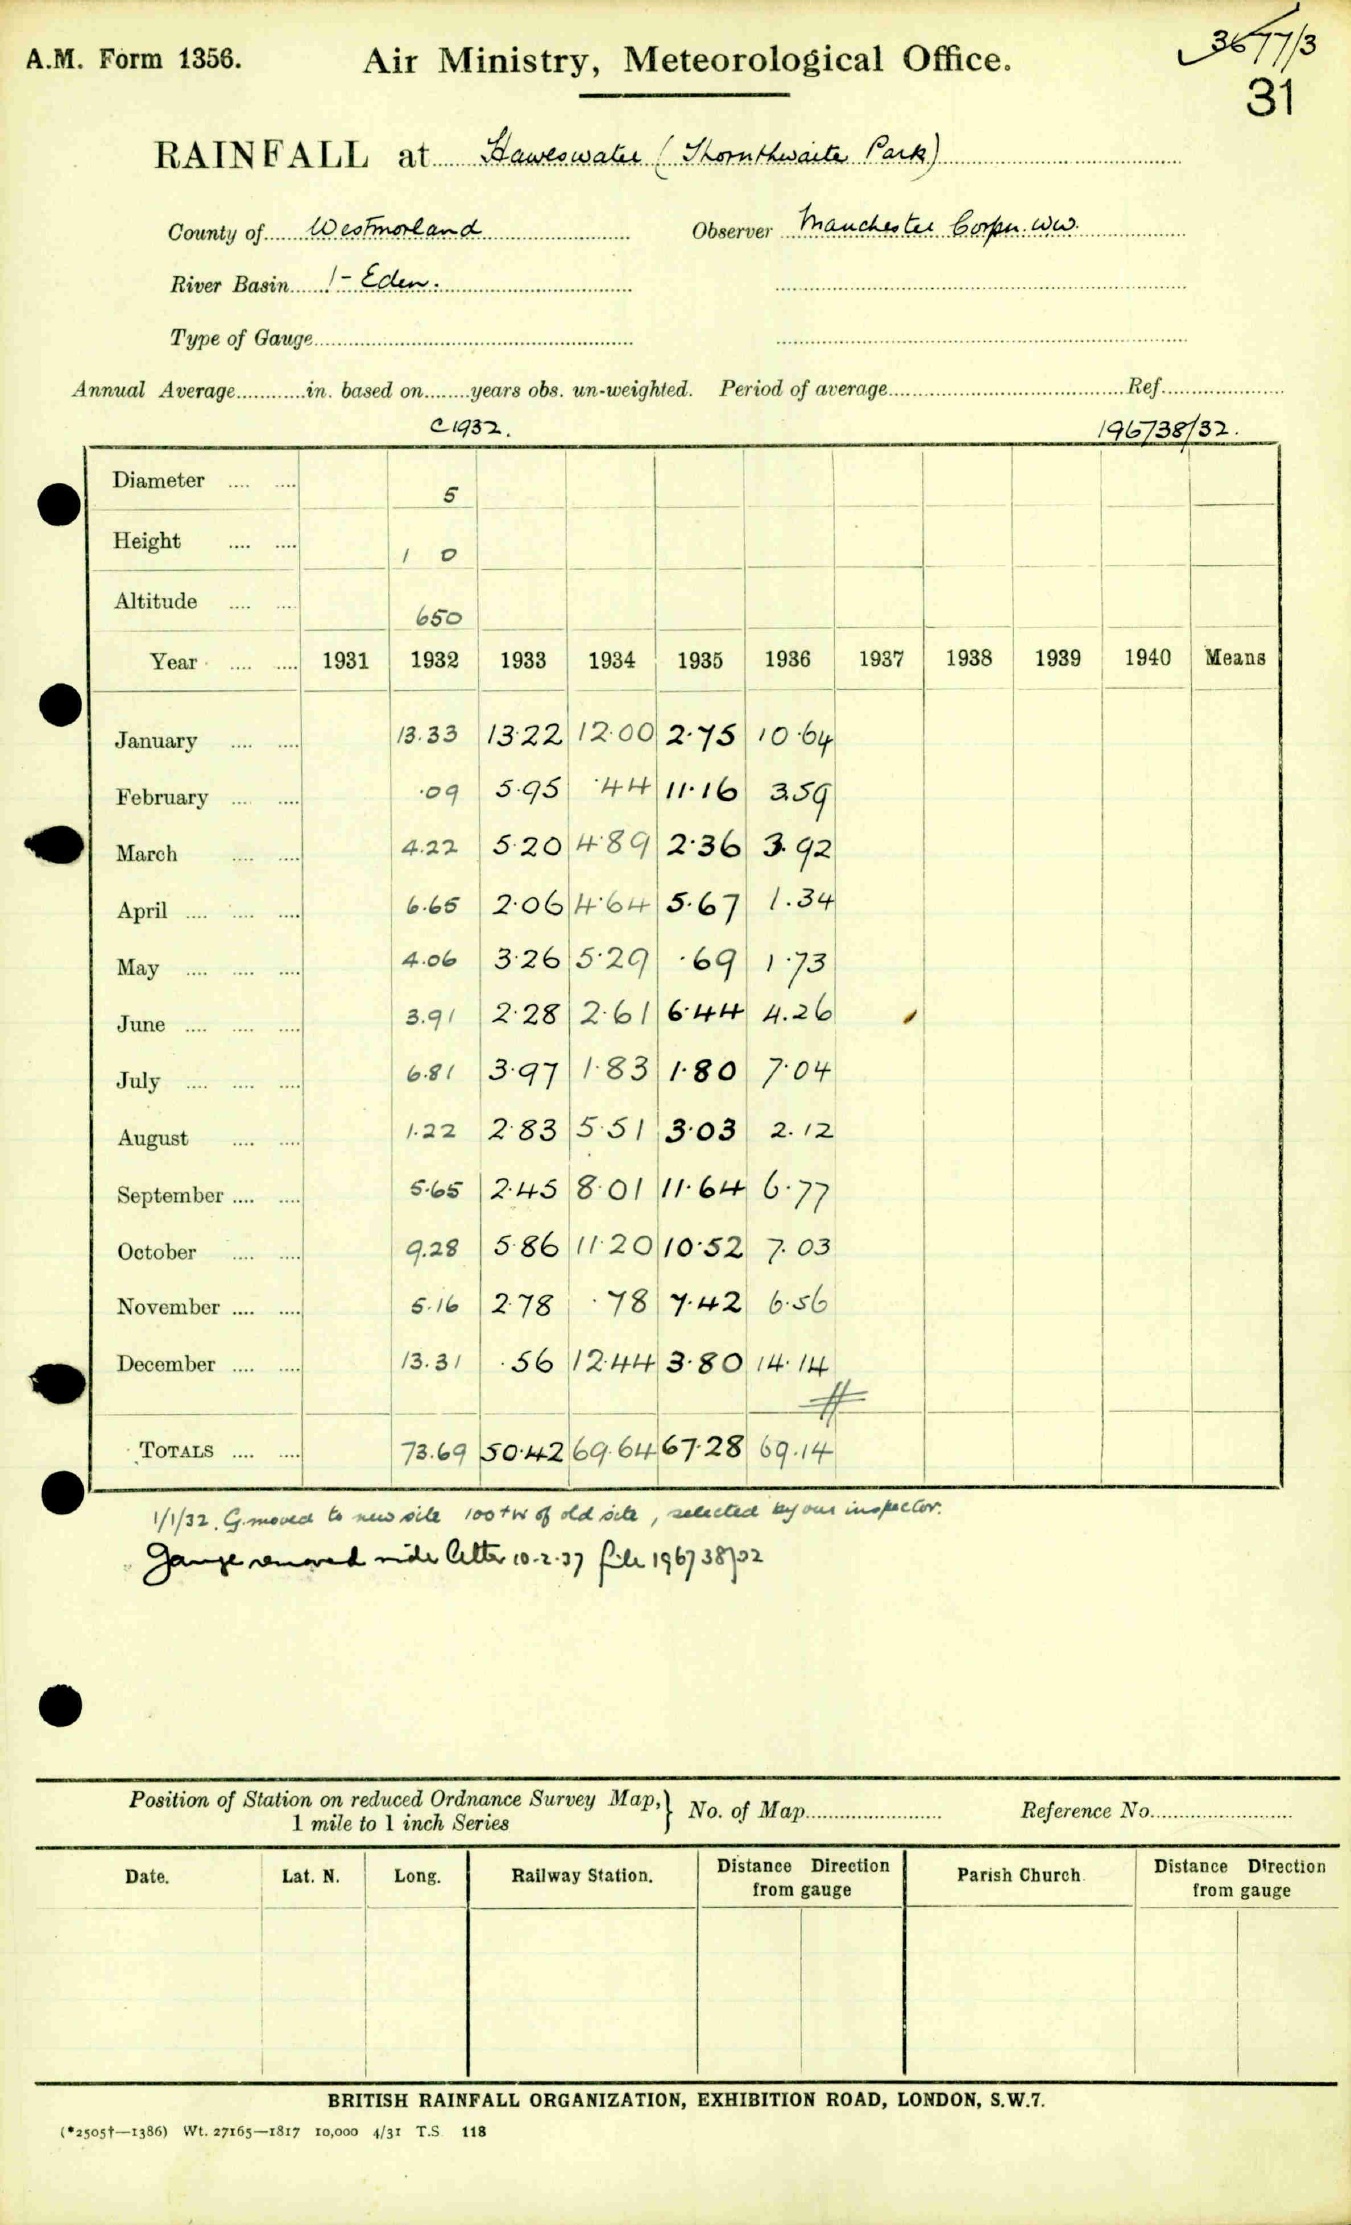 3677/3
A.M. Form 1356. Air Ministry, Meteorological Office.
31
RAINFALL at Haweswater (Thornthwaite Park)
County of Westmorland Observer Manchester Corpn. WW.
River Basin 1- Eden.
Type of Gauge
Annual Average in. based on years obs. un-weighted. Period of average Ref.
C1932. 196738/32.
Diameter 5
Height 1 0
Altitude 650
Year 1931 1932 1933 1934 1935 1936 1937 1938 1939 1940 Means
January 13.33 13.22 12.00 2.75 10.64
February .09 5.95 .44 11.16 3.59
March 4.22 5.20 4.89 2.36 3.92
April 6.65 2.06 4.64 5.67 1.34
May 4.06 3.26 5.29 .69 1.73
June 3.91 2.28 2.61 6.44 4.26
July 6.81 3.97 1.83 1.80 7.04
August 1.22 2.83 5.51 3.03 2.12
September 5.65 2.45 8.01 11.64 6.77
October 9.28 5.86 11.20 10.52 7.03
November 5.16 2.78 .78 7.42 6.56
December 13.31 .56 12.44 3.80 14.14
TOTALS 73.69 50.42 69.64 67.28 69.14
1/1/32. G. moved to new site 100 + W of old site, selected by our inspector.
Gauge removed vide letter 10-2-37 file 196738/32
Position of Station on reduced Ordnance Survey Map,} No. of Map Reference No.
1 mile to 1 inch Series
Date. Lat. N. Long. Railway Station. Distance Direction from gauge Parish Church Distance Direction from gauge
BRITISH RAINFALL ORGANIZATION, EXHIBITION ROAD, LONDON, S.W.7.
(*2505†—1386) Wt. 27165—1817 10,000 4/31 T.S. 118